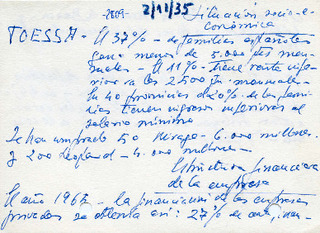 -2809-
2/11/35
Situación socio-e-
conómica
FOESSA - El 37% - de familias españolas
gana menos de 5.000 pts men-
suales - El 11% - tiene renta infe-
rior a los 2.500 pts mensuales.
En 40 provincias el 20% de las fami-
lias tienen ingresos inferiores al
salario mínimo
Se han comprado 50 Mirage - 6.000 millones.
y 200 Leopard - 4.000 millones -
Estructura financiera
de la empresa
El año 1967 - la financiación de las empresas
privadas se obtenía así: 27% en